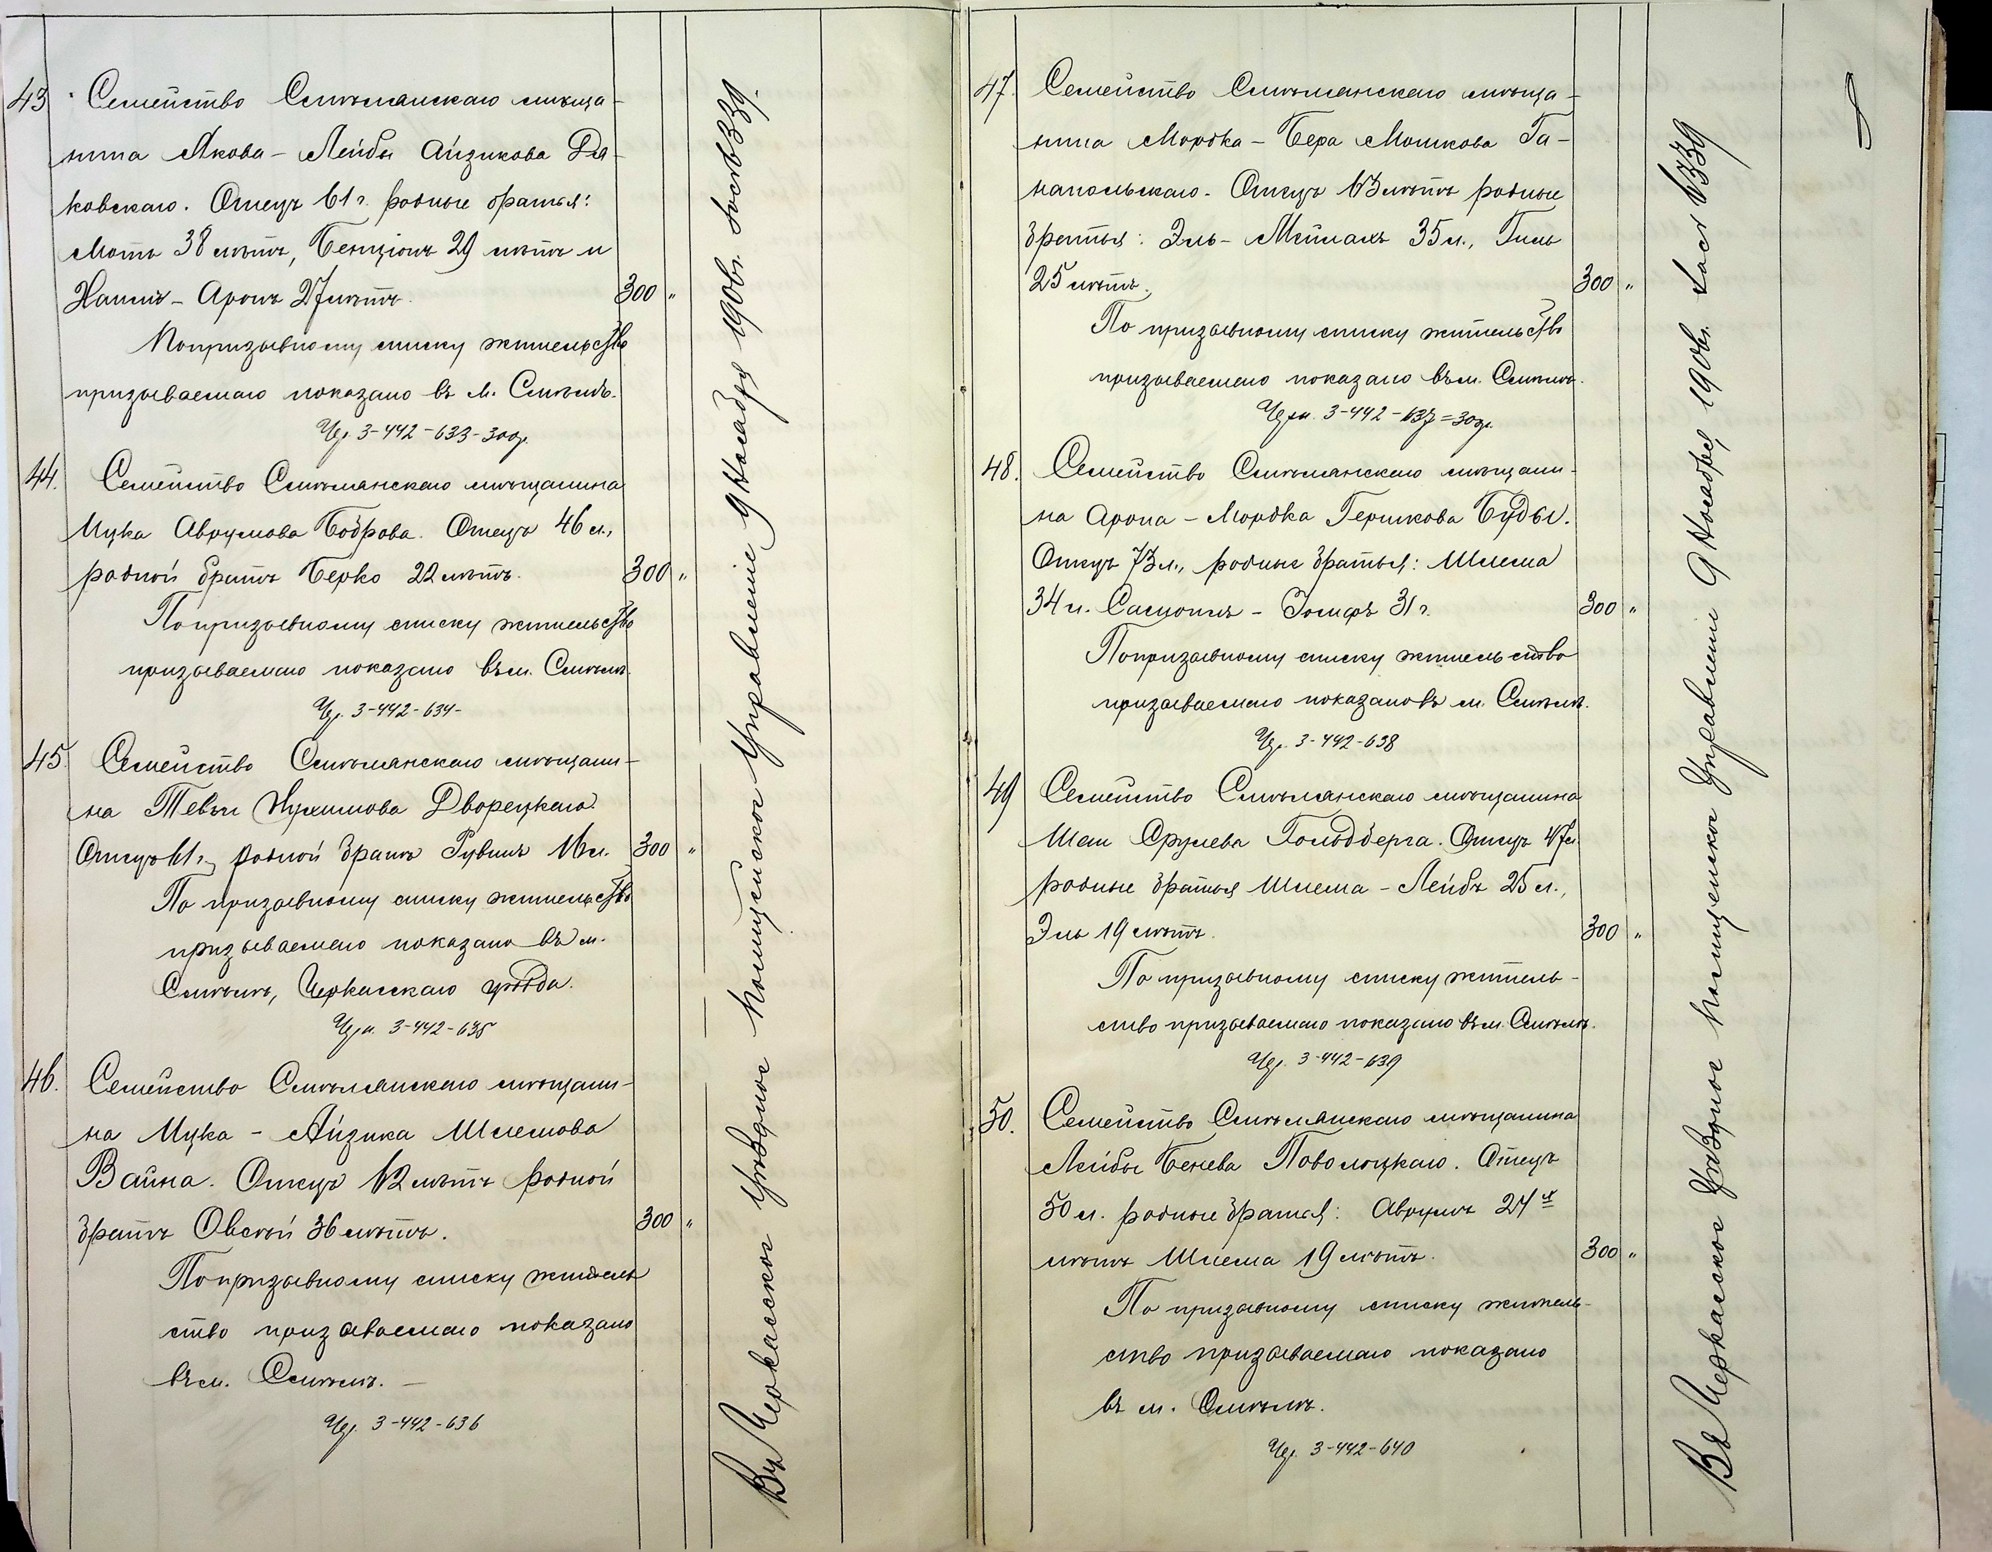 43 Семейство Смѣлянскаго мѣща-
нина Якова-Лейбы Айзикова Дя-
ковскаго. Отецъ 61 г. родные братья:
Моть 38 лѣтъ, Бенціонъ 29 лѣтъ и
Хаимъ-Аронъ 27 лѣтъ. 300 "
По призывному списку жительство
призываемаго показано въ м. Смѣлѣ.
3-442-633-300р.
44. Семейство Смѣлянскаго мѣщанина
Ицка Аврумова Боброва. Отецъ 46 л.,
родной братъ Берко 22 лѣтъ. 300 "
По призывному списку жительство
призываемаго показано въ м. Смѣлѣ.
3-442-634-
45. Семейство Смѣлянскаго мѣщани-
на Тевьи Нухимова Дворецкаго.
Отецъ 61 г., родной братъ Рувинъ 16 л. 300 "
По призывному списку жительство
призываемаго показано въ м.
Смѣлѣ, Черкасскаго уѣзда.
3-442-635
46. Семейство Смѣлянскаго мѣщани-
на Ицка - Айзика Шлемова
Вайна. Отецъ 62 лѣтъ родной
братъ Овсѣй 36 лѣтъ. 300 "
По призывному списку житель
ство призываемаго показано
въ м. Смѣлѣ. —
3-442-636
Въ Черкасское Уѣздное Полицейское Управленіе 9 Ноября 1906 г.
47. Семейство Смѣлянскаго мѣща-
нина Мордка-Бера Мошкова Га-
напольскаго. Отецъ 63 лѣтъ родные
братья: Эль-Мейлахъ 35 л., Гиль
25 лѣтъ. 300 "
По призывному списку жительство
призываемаго показано въ м. Смѣлѣ.
3-442-637=300р.
48. Семейство Смѣлянскаго мѣщани-
на Арона-Мордка Гершкова Буды.
Отецъ 73 л., родные братья: Шлема
34 л. Самуилъ-Іосифъ 31 г. 300 "
По призывному списку жительство
призываемаго показано въ м. Смѣлѣ.
3-442-638
49 Семейство Смѣлянскаго мѣщанина
Шаи Срулева Гольдберга. Отецъ 47 л.
родные братья Шлема-Лейбъ 25 л.,
Эль 19 лѣтъ. 300 "
По призывному списку житель-
ство призываемаго показано въ м. Смѣлѣ.
3-442-639
50. Семейство Смѣлянскаго мѣщанина
Лейбы Бенева Поволоцкаго. Отецъ
50 л. родные братья: Аврумъ 24х
лѣтъ Шлема 19 лѣтъ. 300 "
По призывному списку житель-
ство призываемаго показано
въ м. Смѣлѣ.
3-442-640
Въ Черкасское Уѣздное Полицейское Управленіе 9 Ноября 1906 г.